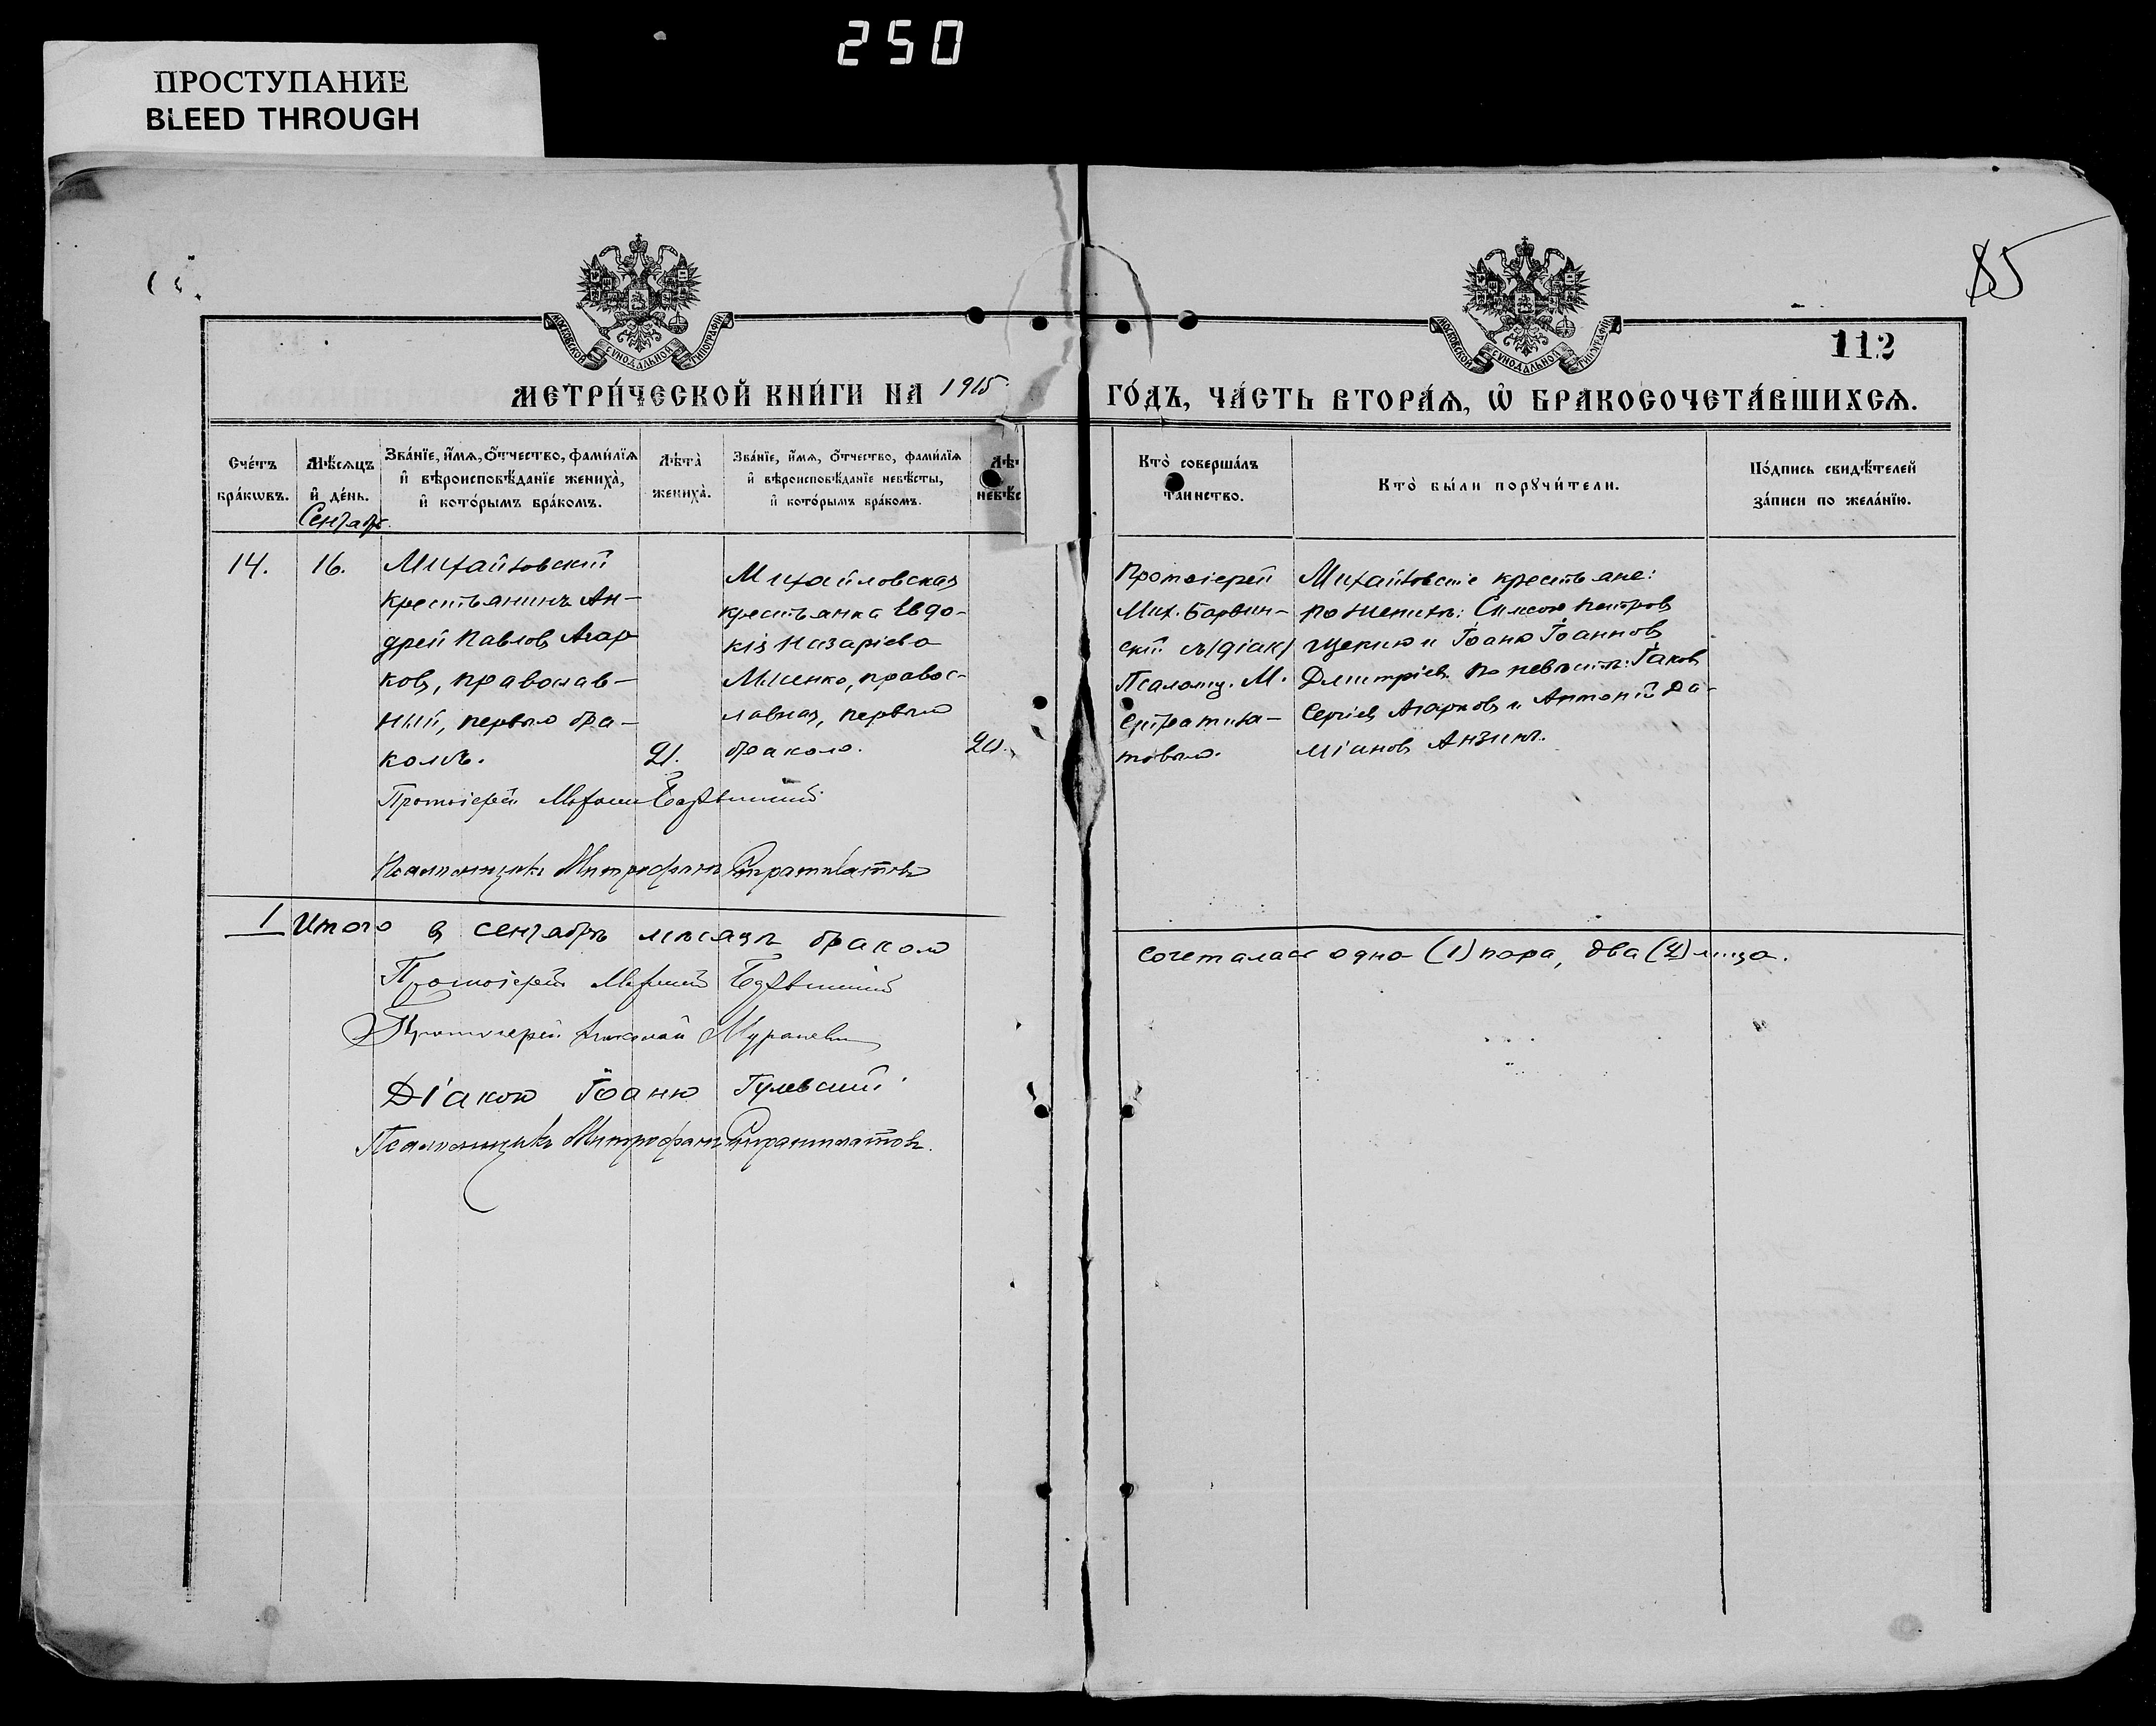 250
ПРОСТУПАНИЕ
BLEED THROUGH
85
112
МОСКОВСКОЙ СУНОДАЛЬНОЙ ТИПОГРАФІИ
МОСКОВСКОЙ СУНОДАЛЬНОЙ ТИПОГРАФІИ
МЕТРИ́ЧЕСКОЙ КНИ́ГИ НА 1915
ГО́ДЪ, ЧА́СТЬ ВТОРА́Я, Ѡ БРАКОСОЧЕТА́ВШИХСЯ.
Сче́тъ бра́кѡвъ.
Мѣ́сяцъ и де́нь.
Зва́нїе, и́мя, ѻ҆́тчество, фами́лїя и вѣроисповѣ́данїе жениха̀, и кото́рымъ бра́комъ.
Лѣ́та жениха̀.
Зва́нїе, и́мя, ѻ҆́тчество, фами́лїя и вѣроисповѣ́данїе невѣ́сты, и кото́рымъ бра́комъ.
Лѣт невѣс
Кто̀ соверша́лъ таинство.
Кто̀ бы́ли порꙋчи́тели.
По́дпись свидѣ́телей за́писи по жела́нїю.
Сентябр.
14.
16.
Михайловскій
крестьянинъ Ан-
дрей Павловъ Агар
ковъ, православ-
ный, первымъ бра-
комъ.
21.
Михайловская
крестьянка Евдо-
кія Назаріева
Мысенко, правос-
лавная, первымъ
бракомъ.
20.
Протоіерей
Мих. Барвин-
скій съ (діак)
Псаломщ. М.
Стратила-
товымъ.
Михайловскіе крестьяне:
по женихѣ: Симеонъ Петровъ
Щекинъ и Іоаннъ Іоанновъ
Дмитріевъ. По невѣстѣ: Іаковъ
Сергіевъ Агарковъ и Антоній Да-
міановъ
Протоіерей Михаилъ Барвинскій
Псаломщикъ Митрофанъ Стратилатовъ
1 Итого въ сентябрѣ мѣсяцѣ бракомъ
сочеталась одна (1) пара, два (2) лица.
Протоіерей Михаилъ Барвинскій
Протоіерей Николай
Діаконъ Іоаннъ Гулевскій.
Псаломщикъ Митрофанъ Стратилатовъ.